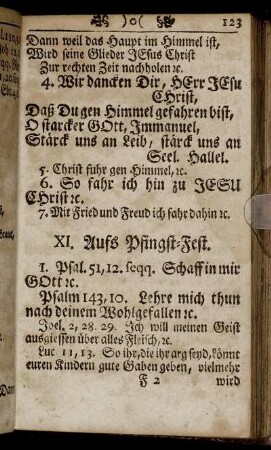 )o( 123
Dann weil das Haupt im Himmel ist,
Wird seine Glieder JEsus Christ
Zur rechten Zeit nachholen ꝛc.
4. Wir dancken Dir, HErr JEsu
CHrist,
Daß Du gen Himmel gefahren bist,
O starcker GOtt, Immanuel,
Stärck uns an Leib, stärck uns an
Seel. Hallel.
5. Christ fuhr gen Himmel, ꝛc.
6. So fahr ich hin zu JESU
CHrist ꝛc.
7. Mit Fried und Freud ich fahr dahin ꝛc.
XI. Aufs Pfingst-Fest.
1. Psal. 51, 12. seqq. Schaff in mir
GOtt ꝛc.
Psalm 143, 10. Lehre mich thun
nach deinem Wohlgefallen ꝛc.
Joel. 2, 28. 29. Ich will meinen Geist
ausgiessen über alles Fleisch, ꝛc.
Luc 11, 13. So ihr, die ihr arg seyd, könnt
euren Kindern gute Gaben geben, vielmehr
F 2 wird